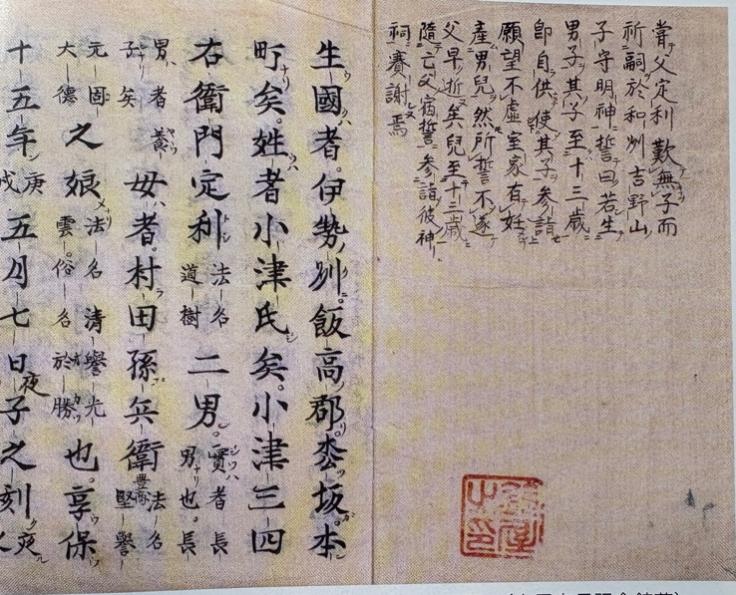 嘗父定利歎無子而
祈嗣於和刕吉野山
子守明神誓曰若生
男子其子至十三歳
即自供使其子参詣
願望不虚室家有妊
産男兒然所誓不遂
父早折矣兒至十三歳
隨亡父宿誓参詣彼神
祠賽謝焉
生國者伊勢刕飯高郡枩坂本
町矣姓者小津氏矣小津三四
右衛門定利法名道樹二男實者長男也長
男者養子矣母者村田孫兵衛法名堅譽
元固大德之娘法名清譽光雲俗名於勝也享保
十五年庚戌五月七日夜子之刻